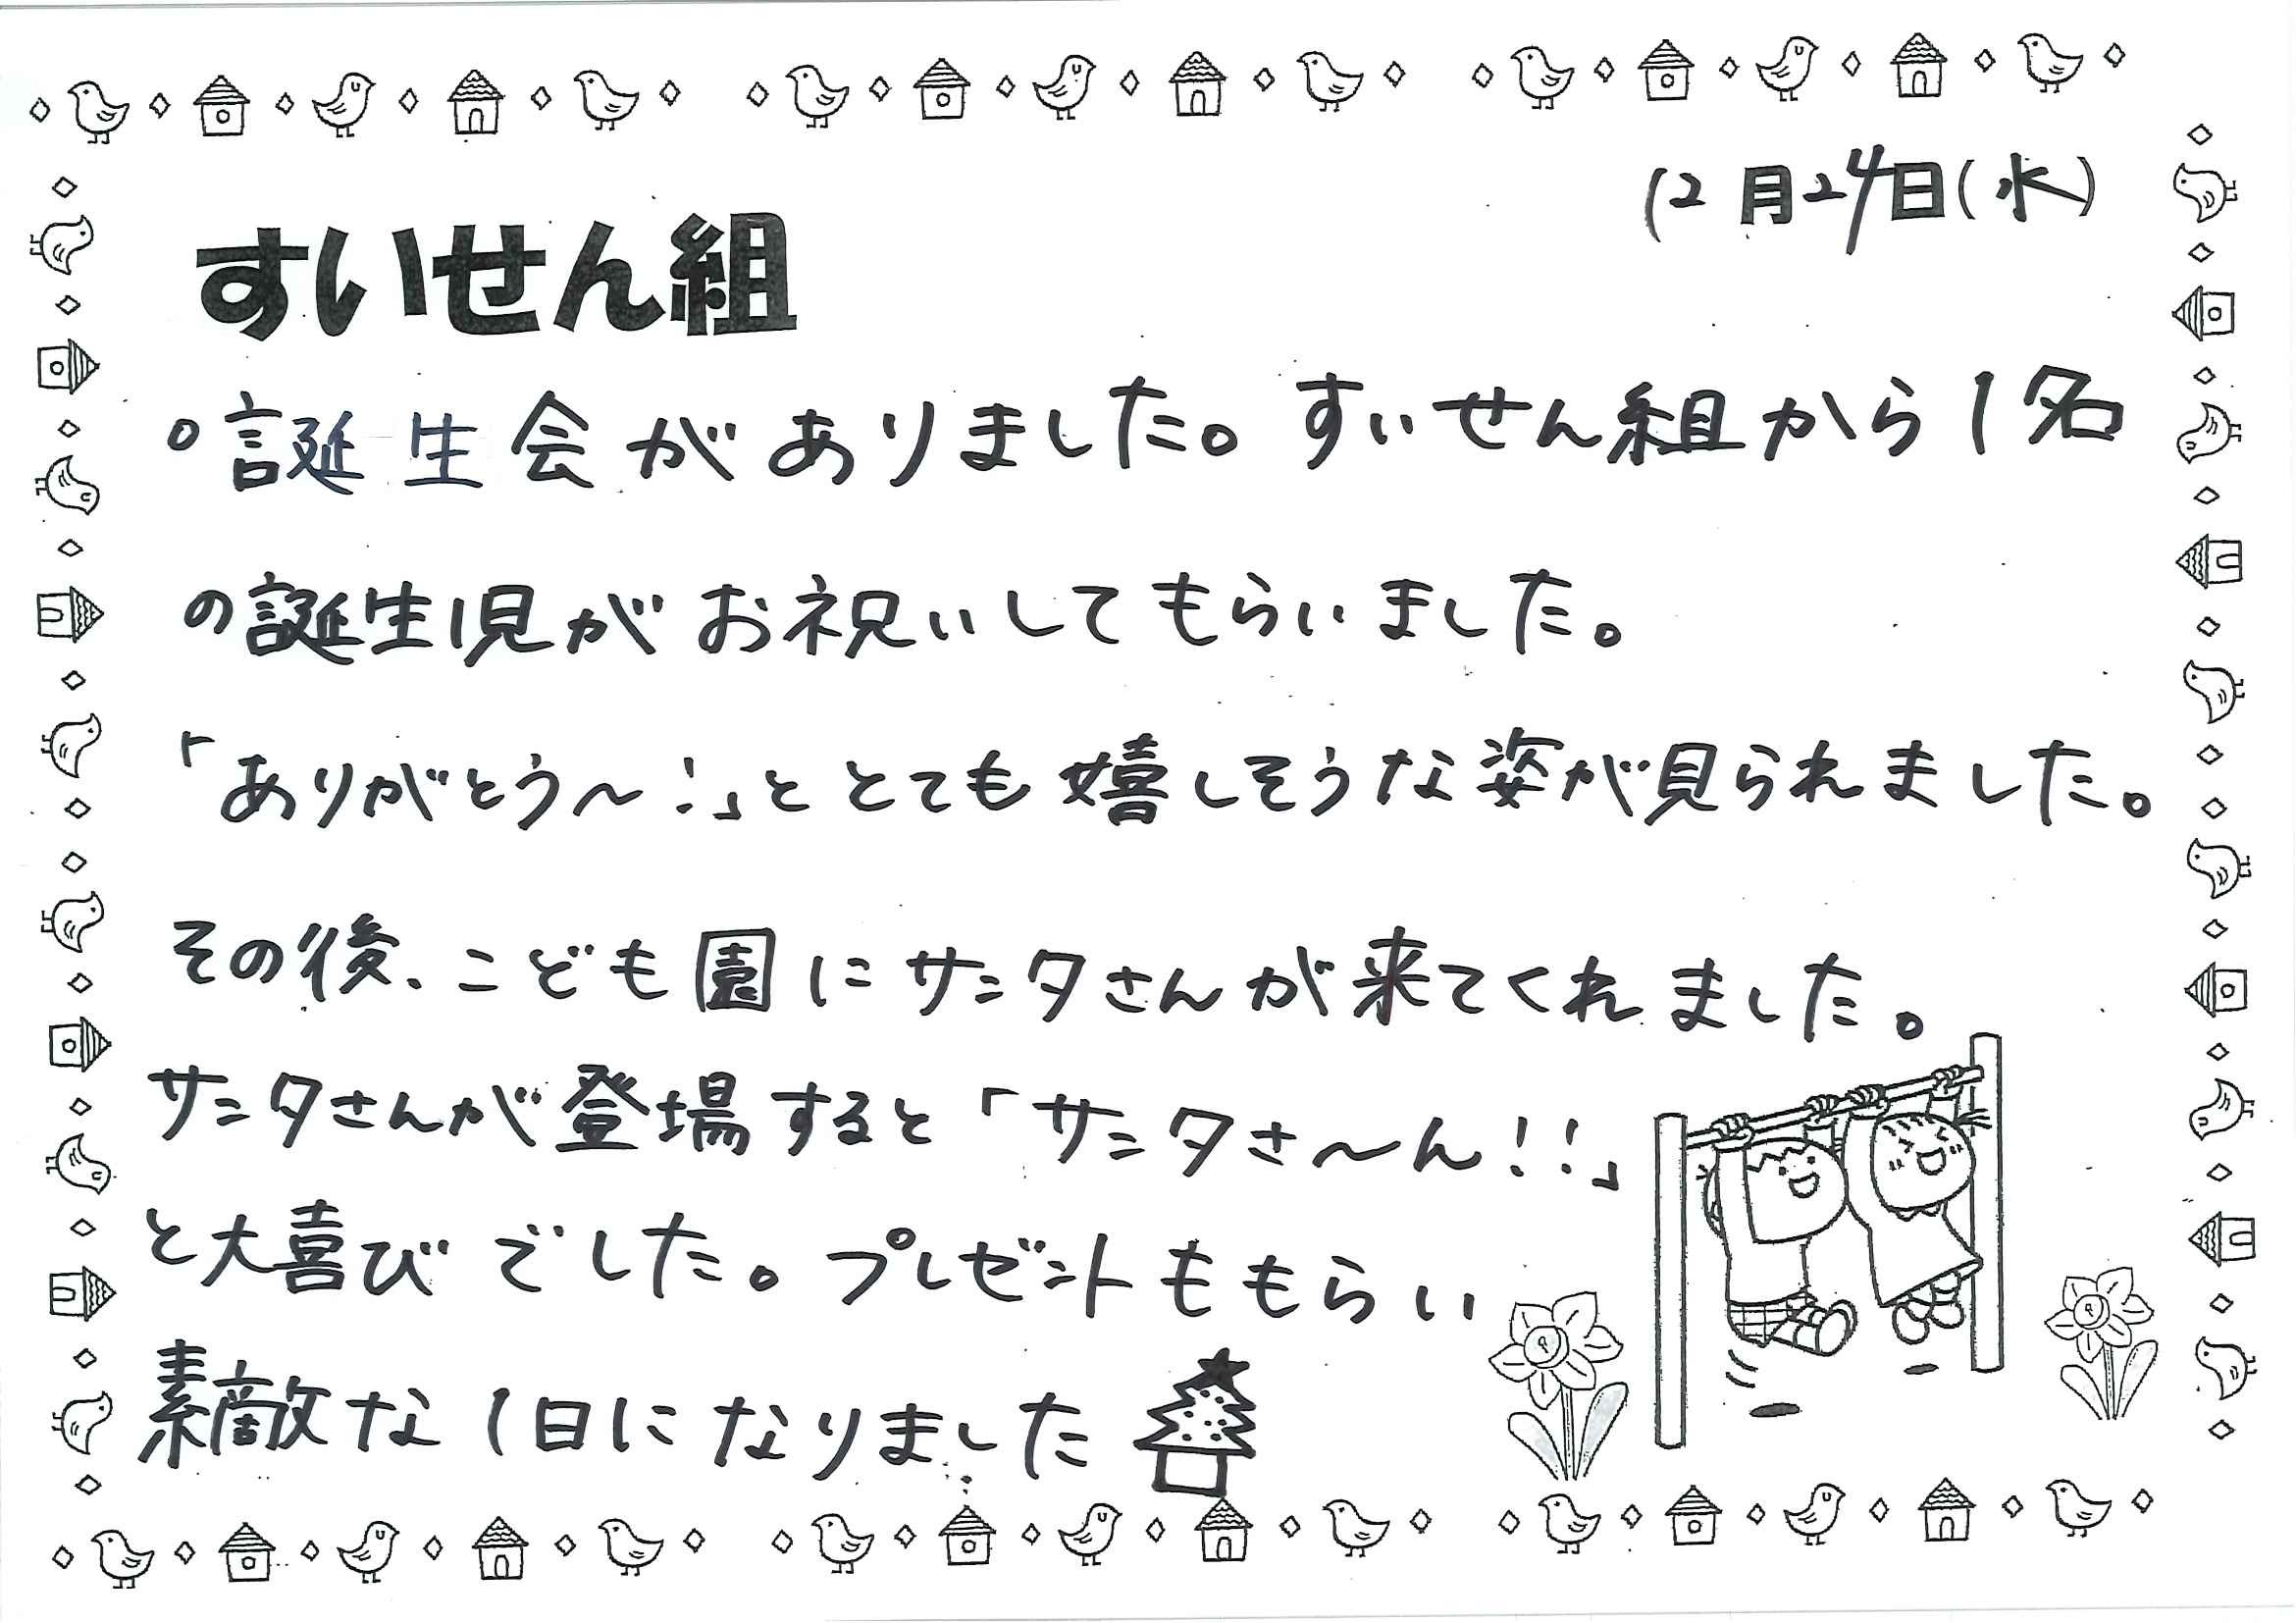 12月24日(水)
すいせん組
○誕生会がありました。すいせん組から1名
の誕生児がお祝いしてもらいました。
「ありがとう〜!」ととても嬉しそうな姿が見られました。
その後、こども園にサンタさんが来てくれました。
サンタさんが登場すると「サンタさ〜ん!!」
と大喜びでした。プレゼントももらい
素敵な1日になりました